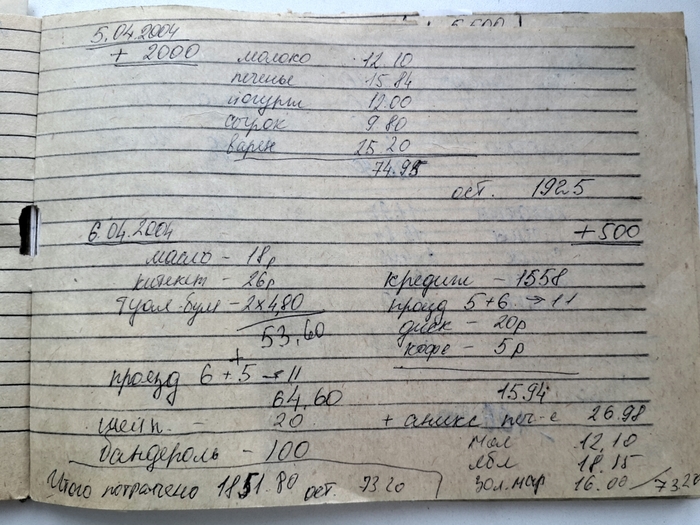 5.04.2004
+ 2000
молоко 12.10
печенье 15.84
йогурт 12.00
сырок 9.80
варен 25.20
74.95
ост. 1925
6.04.2004 +500
масло - 18р
- 26р
туал. бум - 2x4,80
53,60
+
проезд 6 + 5 → 11
64,60
- 20
бандероль - 100
Итого потрачено 1851.80 ост. 7320
кредит - 1558
проезд 5+6 → 11
диск - 20р
кофе - 5р
1594
+ аникс печ-е 26.98
мол 12,10
ябл 18.15
зол. мар 16.00 / 7320